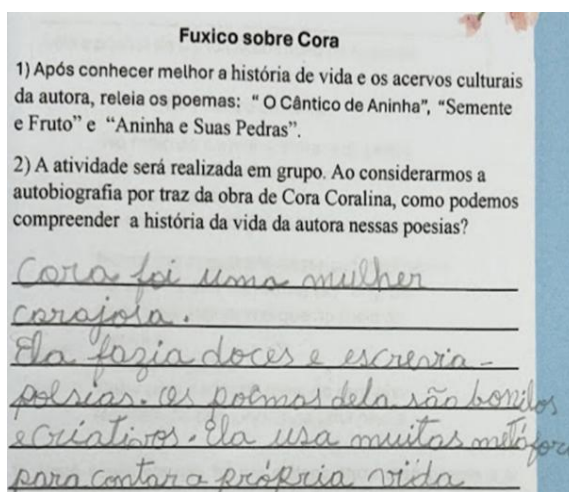 Fuxico sobre Cora
1) Após conhecer melhor a história de vida e os acervos culturais
da autora, releia os poemas: “ O Cântico de Aninha”, “Semente
e Fruto” e “Aninha e Suas Pedras”.
2) A atividade será realizada em grupo. Ao considerarmos a
autobiografia por traz da obra de Cora Coralina, como podemos
compreender a história da vida da autora nessas poesias?
Cora foi uma mulher
corajosa.
Ela fazia doces e escrevia
poesias. os poemas dela são bonitos
e criativos. Ela usa muitas metáfor
para contar a própria vida